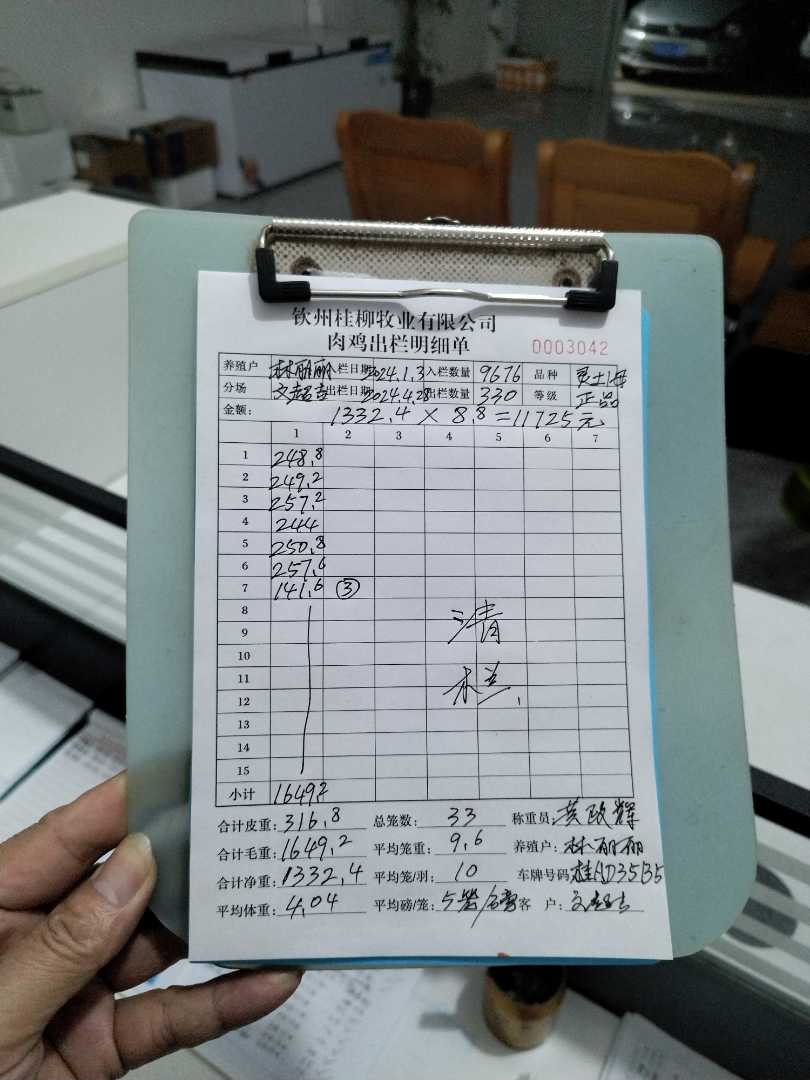 钦州桂柳牧业有限公司
肉鸡出栏明细单
0003042
养殖户 林丽丽 入栏日期 2024.1.3 入栏数量 9676 品种
分场 出栏日期 2024.4.28 出栏数量 330 等级 正品
金额: 1332.4 × 8.8 = 11725元
1 2 3 4 5 6 7
1 248.8
2 249.2
3 257.2
4 244
5 250.8
6 257.6
7 141.6 ③
8
9 清
10
11 栏
12
13
14
15
小计 1649.2
合计皮重: 316.8 总笼数: 33 称重员:
合计毛重: 1649.2 平均笼重: 9.6 养殖户: 林丽丽
合计净重: 1332.4 平均笼/羽: 10 车牌号码 桂AD35B5
平均体重: 4.04 平均磅/笼: 客 户: